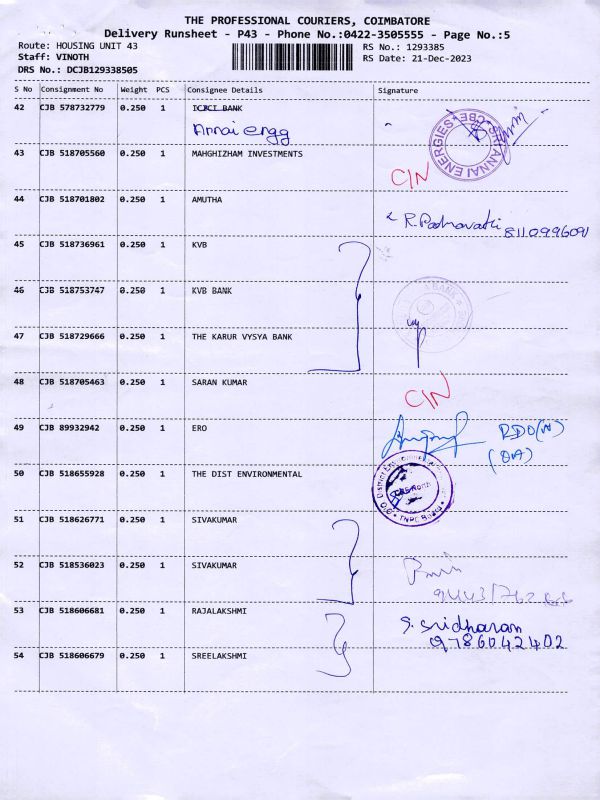 THE PROFESSIONAL COURIERS, COIMBATORE
Delivery Runsheet - P43 - Phone No.:0422-3505555 - Page No.:5
Route: HOUSING UNIT 43
RS No.: 1293385
Staff: VINOTH
RS Date: 21-Dec-2023
DRS No.: DCJB129338505
S No Consignment No Weight PCS Consignee Details Signature
42 CJB 578732779 0.250 1 ICICI BANK
Annai engg
SRI ANNAI ENERGIES CBE
43 CJB 518705560 0.250 1 MAHGHIZHAM INVESTMENTS
C/N
44 CJB 518701802 0.250 1 AMUTHA
R. Padmavathi 8110996091
45 CJB 518736961 0.250 1 KVB
46 CJB 518753747 0.250 1 KVB BANK
BANK
47 CJB 518729666 0.250 1 THE KARUR VYSYA BANK
48 CJB 518705463 0.250 1 SARAN KUMAR
C/N
49 CJB 89932942 0.250 1 ERO
RDO(N)
(OA)
50 CJB 518655928 0.250 1 THE DIST ENVIRONMENTAL
51 CJB 518626771 0.250 1 SIVAKUMAR
52 CJB 518536023 0.250 1 SIVAKUMAR
53 CJB 518606681 0.250 1 RAJALAKSHMI
S. Sridharan
9786042402
54 CJB 518606679 0.250 1 SREELAKSHMI